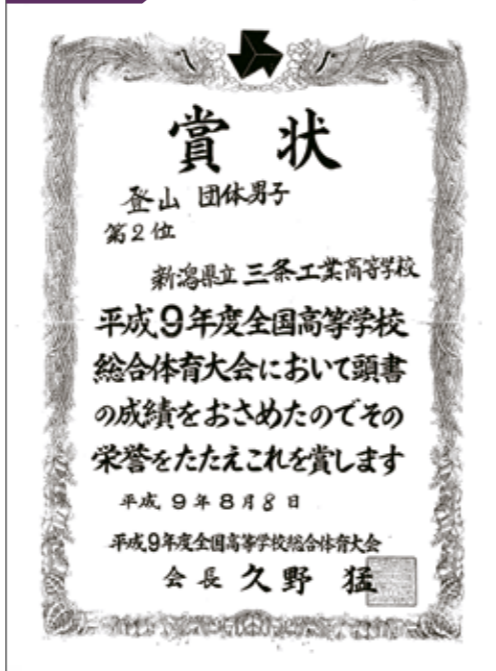 賞状
登山 団体男子
第2位
新潟県立三条工業高等学校
平成9年度全国高等学校
総合体育大会において頭書
の成績をおさめたのでその
栄誉をたたえこれを賞します
平成9年8月8日
平成9年度全国高等学校総合体育大会
会長 久野 猛